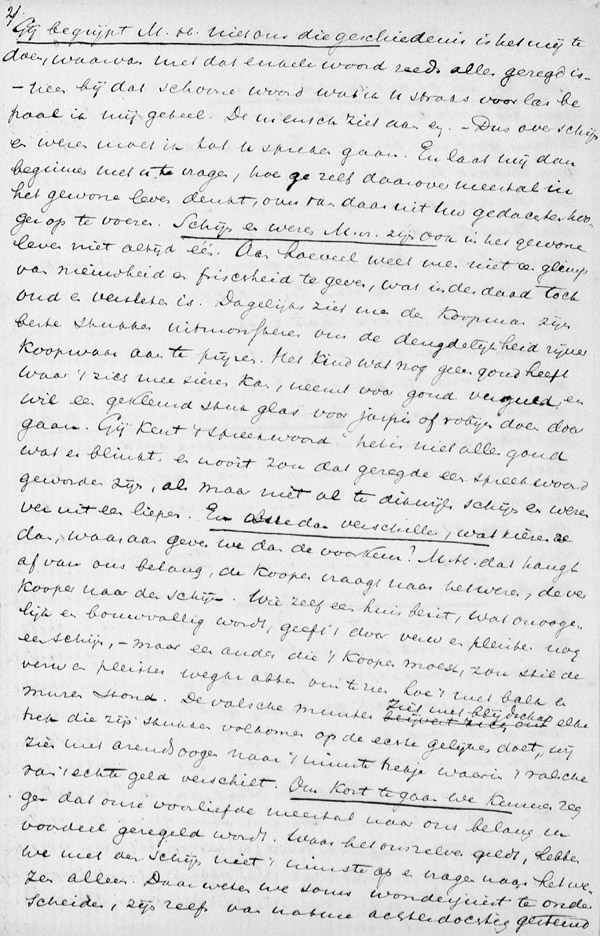 2/.
Gij begrijpt M.H. niet om die geschiedenis is het mij te
doen, waarvan met dat enkele woord reeds alles gezegd is –
– neen bij dat schoone woord wat ik u straks voorlas be
paal ik mij geheel. De mensch ziet aan enz. – Dus over schijn
en wezen moet ik tot u spreken gaan. En laat mij dan
beginnen met u te vragen, hoe ge zelf daarover meestal in
het gewone leven denkt, om van daar uit Uw gedachten hoo-
ger op te voeren. Schijn en wezen M.H. zijn ook in het gewone
leven niet altijd één. Aan hoeveel weet men niet een glimp
van nieuwheid en frischheid te geven, wat inderdaad toch
oud en versleten is. Dagelijks ziet men de Koopman zijn
beste stukken uitmonsteren om de deugdelijkheid zijner
Koopwaar aan te prijzen. Het kind wat nog geen goud heeft
waar 't zich mee sieren kan, neemt voor goud verguld, en
wil een gekleurd stuk glas voor jaspis of robijn doen door
gaan. Gij kent 't spreekwoord "het is niet alles goud
wat er blinkt" en nooit zou dat gezegde een spreekwoord
geworden zijn, als maar niet al te dikwijls schijn en wezen
ver uiteen liepen. En als ze dan verschillen, wat kiezen ze
dan, waaraan geven we dan de voorkeur? M.H. dat hangt
af van ons belang, de kooper vraagt naar het wezen, de ver
kooper naar den schijn. Wie zelf een huis bezit, wat onooge-
lijk en bouwvallig wordt, geeft 't door verw en pleister nog
een schijn, – maar een ander die 't koopen moest, zou stil de
verw en pleister weghakken om te zien hoe 't met balk en
muren stond. De valsche munter ziet met blijdschap elke
trek die zijn stukken volkomen op de echte gelijken doet, wij
zien met arendsoogen naar 't minste trekje waarin 't valsche
van 't echte geld verschilt. Om Kort te gaan we Kunnen zeg
gen dat onze voorliefde meestal naar ons belang en
voordeel geregeld wordt. Waar het ons zelven geldt, hebben
we met den schijn niet 't minste op en vragen naar het we
zen alleen. Daar weten we soms wonderjuist te onder
scheiden, zijn zelfs van nature achterdochtig gestemd